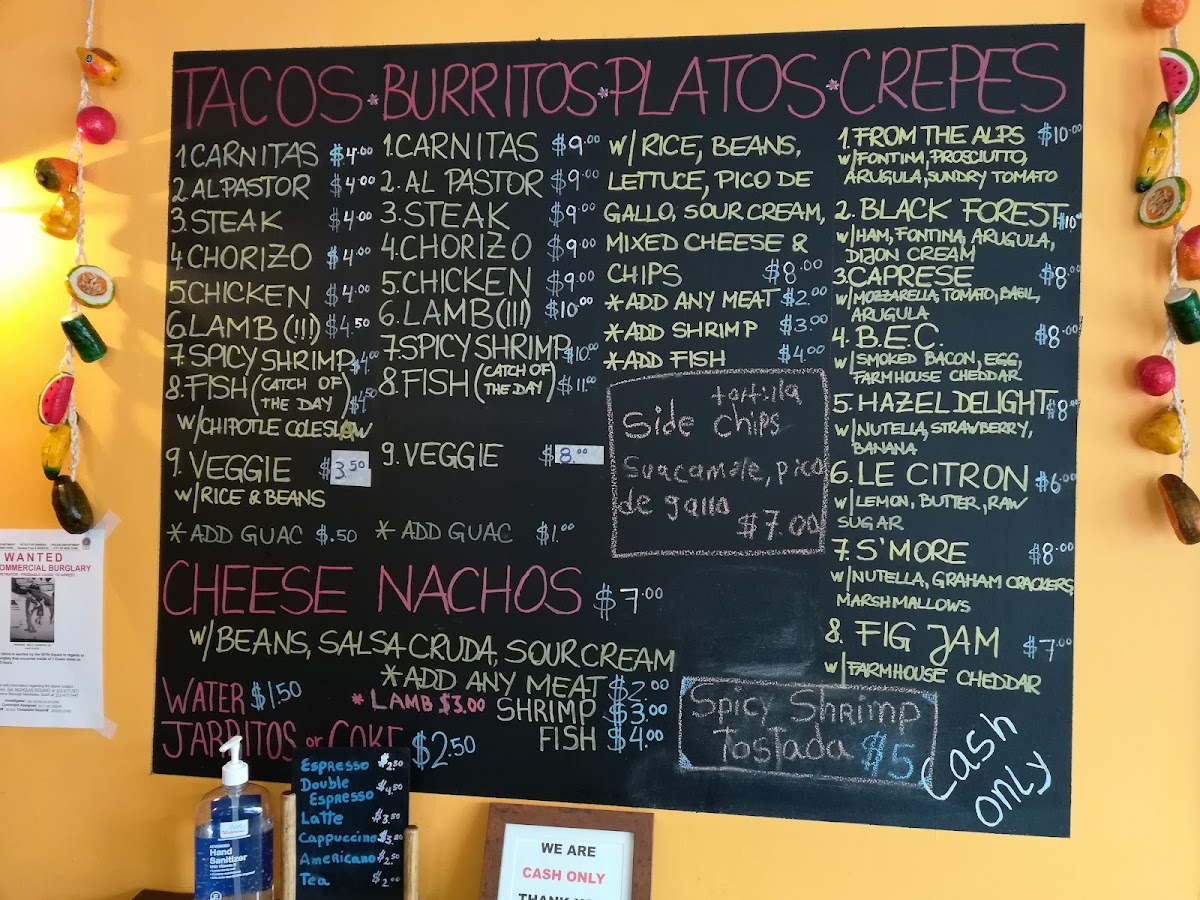 TACOS * BURRITOS * PLATOS * CREPES
1 CARNITAS $4.00
2. AL PASTOR $4.00
3. STEAK $4.00
4 CHORIZO $4.00
5 CHICKEN $4.00
6. LAMB (!!!) $4.50
7 SPICY SHRIMP $4.00
8. FISH (CATCH OF THE DAY) $4.50
W/CHIPOTLE COLESLAW
9. VEGGIE $3.50
W/RICE & BEANS
* ADD GUAC $.50
1. CARNITAS $9.00
2. AL PASTOR $9.00
3. STEAK $9.00
4. CHORIZO $9.00
5. CHICKEN $9.00
6. LAMB (!!!) $10.00
7. SPICY SHRIMP $10.00
8. FISH (CATCH OF THE DAY) $11.00
9. VEGGIE $8.00
* ADD GUAC $1.00
W/ RICE, BEANS,
LETTUCE, PICO DE
GALLO, SOUR CREAM,
MIXED CHEESE &
CHIPS $8.00
* ADD ANY MEAT $2.00
* ADD SHRIMP $3.00
* ADD FISH $4.00
tortilla
Side chips
Guacamole, pico
de gallo
$7.00
1. FROM THE ALPS $10.00
W/FONTINA, PROSCIUTTO,
ARUGULA, SUNDRY TOMATO
2. BLACK FOREST $10.00
W/HAM, FONTINA, ARUGULA,
DIJON CREAM
3. CAPRESE $8.00
W/MOZZARELLA, TOMATO, BASIL,
ARUGULA
4. B.E.C. $8.00
W/SMOKED BACON, EGG,
FARMHOUSE CHEDDAR
5. HAZEL DELIGHT $8.00
W/NUTELLA, STRAWBERRY,
BANANA
6. LE CITRON $6.00
W/LEMON, BUTTER, RAW
SUGAR
7. S'MORE $8.00
W/NUTELLA, GRAHAM CRACKERS,
MARSHMALLOWS
8. FIG JAM $7.00
W/ FARMHOUSE CHEDDAR
CHEESE NACHOS $7.00
W/BEANS, SALSA CRUDA, SOUR CREAM
* ADD ANY MEAT $2.00
* LAMB $3.00 SHRIMP $3.00
FISH $4.00
WATER $1.50
JARRITOS or COKE $2.50
Spicy Shrimp
Tostada $5
Cash
only
ESPRESSO $2.50
DOUBLE
ESPRESSO $4.50
LATTE $3.50
CAPPUCCINO $3.50
AMERICANO $2.50
TEA $2.00
WE ARE
CASH ONLY
WANTED
COMMERCIAL BURGLARY
Hand
Sanitizer